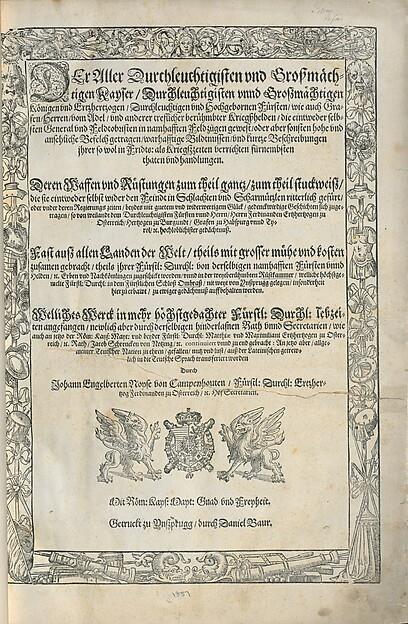 DEr Aller Durchleuchtigisten vnd Großmäch-
tigen Kayser / Durchleuchtigisten vnnd Großmächtigen
Königen vnd Ertzhertzogen / Durchleuchtigen vnd Hochgebornen Fürsten / wie auch Gra-
fen / Herren / vom Adel / vnd anderer treflicher berühmbter Kriegßhelden / die eintweder selb-
sten General vnd Feldtobristen in namhafften Feldzügen gewest / oder aber sonsten hohe vnd
ansehliche Befelch getragen / warhafftige Bildtnussen / vnd kurtze Beschreibungen
jhrer so wol in Fridts: als Kriegszeiten verrichten fürnembsten
thaten vnd handlungen.
Deren Waffen vnd Rüstungen zum theil gantz / zum theil stuckweiß /
die sie eintweder selbst wider den Feindt in Schlachten vnd Scharmützlen ritterlich gefürt /
oder vnder deren Regierungs zeiten / beydes mit gutem vnd widerwertigem Glück / gedenckwürdige Geschichten sich zuge-
tragen / so von weilandt dem Durchleuchtigisten Fürsten vnnd Herrn / Herrn Ferdinanden Ertzhertzogen zu
Osterreich / Hertzogen zu Burgundt / Grafen zu Habspurg vnnd Ty-
rol / ec. hochlöblichister gedächtnuß.
Fast auß allen Landen der Welt / theils mit grosser mühe vnd kosten
zusamen gebracht / theils jhrer Fürstl: Durchl: von derselbigen namhafften Fürsten vnnd
Helden / ec. Erben vnd Nachkömlingen zugeschickt worden / vnnd in der weytberühmbten Rüstkammer /
in dem Fürstlichen Schloß Ombraß / nit weyt von Ynßprugg gelegen /
hierzu erbawt / zu ewiger gedächtnuß auffbehalten werden.
Welliches Werck in mehr höchstgedachter Fürstl: Durchl: lebzei-
ten angefangen / newlich aber durch derselbigen hinderlaßnen Rath vnnd Secretarien / wie
auch an jetzo der Röm: Kays: Mayt: vnd beyder Fürstl: Durchl: Matthiæ vnd Maximiliani Ertzhertzogen zu Oster-
reich / ec. Rath / Jacob Schrencken von Notzing / ec. continuiert vnnd zu end gebracht: An jetzo aber / allge-
mainer Teutscher Nation zu ehren / gefallen / nutz vnd lust / auß der Lateinischen
lich in die Teutsche Sprach transferiert worden
Durch
Johann Engelberten Noyse von Campenhouten / Fürstl: Durchl: Ertzher-
tzog Ferdinanden zu Osterreich / ec. Hof Secretarien.
Mit Röm: Kays: Mayt: Gnad vnd Freyheit.
Getruckt zu Ynßprugg / durch Daniel Baur.